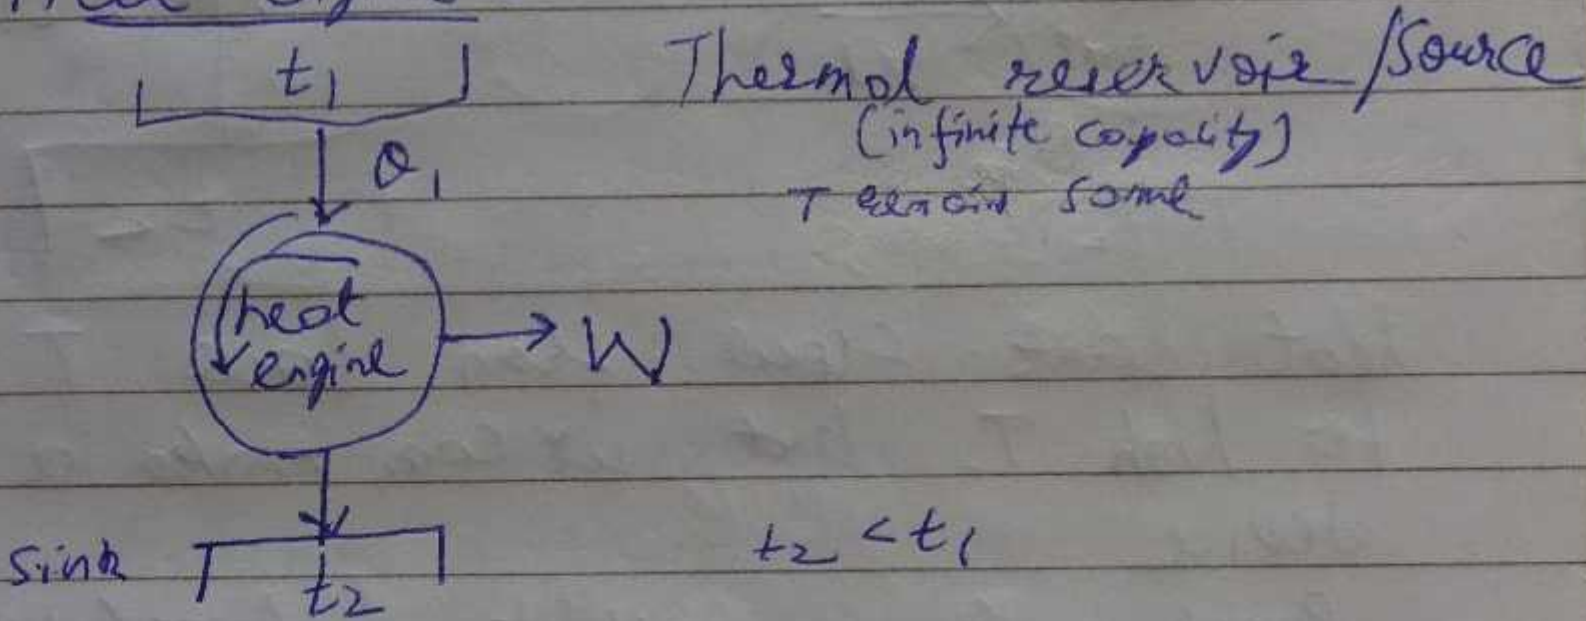 Heat engine
t1
Thermal reservoir / Source
(infinite capacity)
Q1
T remains same
heat
engine
W
Sink
t2
t2 < t1